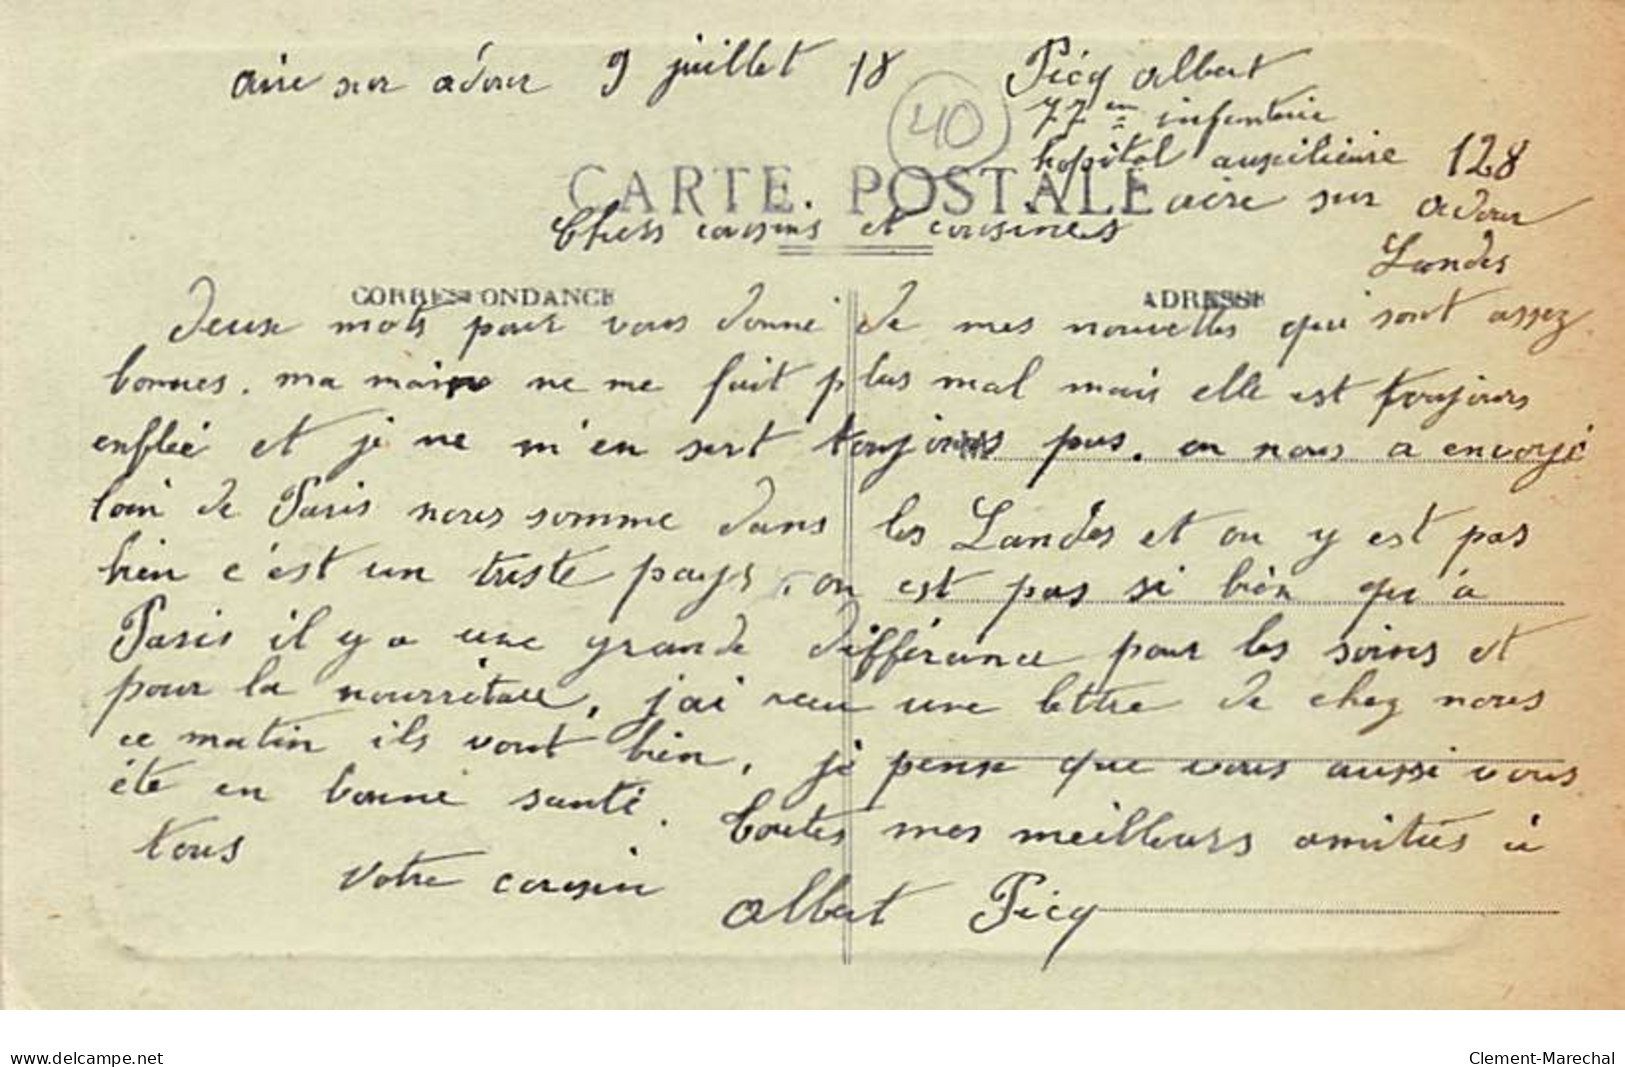 aire sur adour 9 juillet 18
Picq albert
77em infanterie
hopital auxilieure 128
aire sur adour
Landes
40
CARTE POSTALE
Chers cousins et cousines
CORRESPONDANCE
ADRESSE
Deux mots pour vous donné de mes nouvelles qui sont assez
bonnes. ma main ne me fait plus mal mais elle est toujours
enflée et je ne m'en sert toujours pas. on nous a envoyé
loin de Paris nous somme dans les Landes et on y est pas
bien c'est un triste pays. on est pas si bien qu'a
Paris il y a une grande différance pour les soins et
pour la nourriture, j'ai recu une lettre de chez nous
ce matin ils vont bien, je pense que vous aussi vous
éte en bonne santé. Toutes mes meilleurs amitiés à
tous
votre cousin
albert Picq
www.delcampe.net
Clement-Marechal